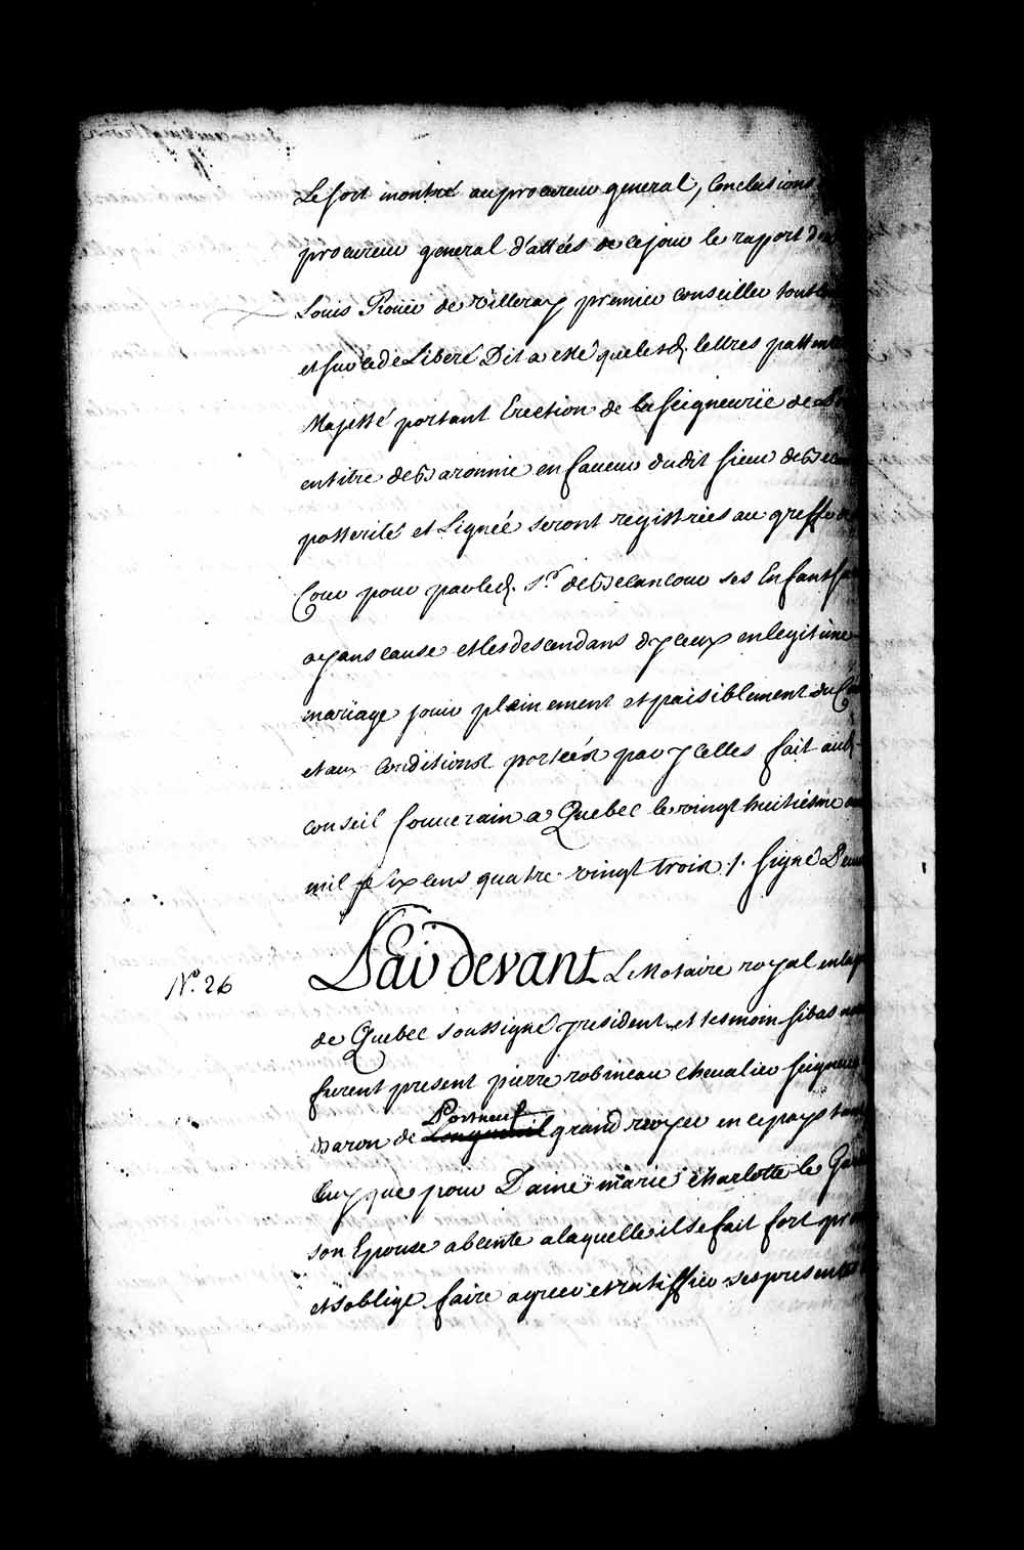 Le soit montré au procureur general, Conclusions
procureur general d'attées de ce jour le raport
Louis Rouër de villeray premier conseiller
et sur ce deLiberé Dit a esté que lesd. lettres
Majesté portant Erection de la seigneurïe de
en titre de Baronnie en faveur dudit sieur de
posterité et Lignée seront registrées au greffe
Cour pour par led. Sr. de Becancour ses Enfants
ayans cause et les descendans d'yceux en legitime
mariage jouir plainement et paisiblement du
et aux conditions portées par ycelles fait au
conseil souverain a Quebec le vingt huitiéme
mil six cens quatre vingt trois ./. signé
Pardevant Le Notaire royal en la
No. 26
de Quebec soussigné y resident et tesmoin si bas
furent present pierre robineau chevalier seigneur
Baron de Longueuil Portneuf grand voyer en ce pays
luy que pour Dame marie charlotte le
son Epouse absente a laquelle il se fait fort
et s'oblige faire agreer et ratiffier ses presentes